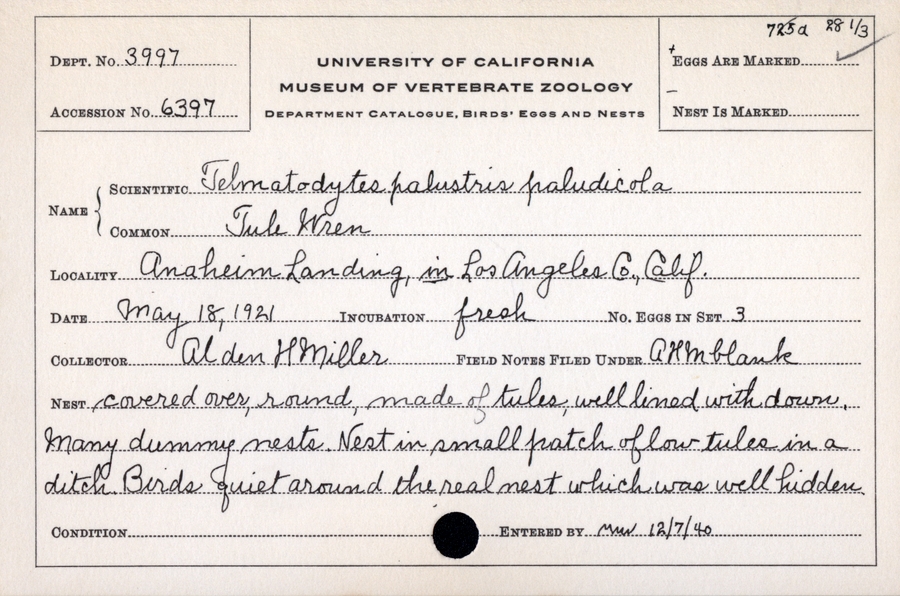 725a 28 1/3
DEPT. NO. 3997
UNIVERSITY OF CALIFORNIA
+ EGGS ARE MARKED ✓
MUSEUM OF VERTEBRATE ZOOLOGY
ACCESSION NO. 6397
DEPARTMENT CATALOGUE, BIRDS' EGGS AND NESTS
– NEST IS MARKED
NAME
SCIENTIFIC Telmatodytes palustris paludicola
COMMON Tule Wren
LOCALITY Anaheim Landing, in Los Angeles Co., Calif.
DATE May 18, 1921 INCUBATION fresh NO. EGGS IN SET 3
COLLECTOR Alden H Miller FIELD NOTES FILED UNDER AHM blank
NEST covered over, round, made of tules, well lined with down.
Many dummy nests. Nest in small patch of low tules in a
ditch. Birds quiet around the real nest which was well hidden.
CONDITION ENTERED BY 12/7/40